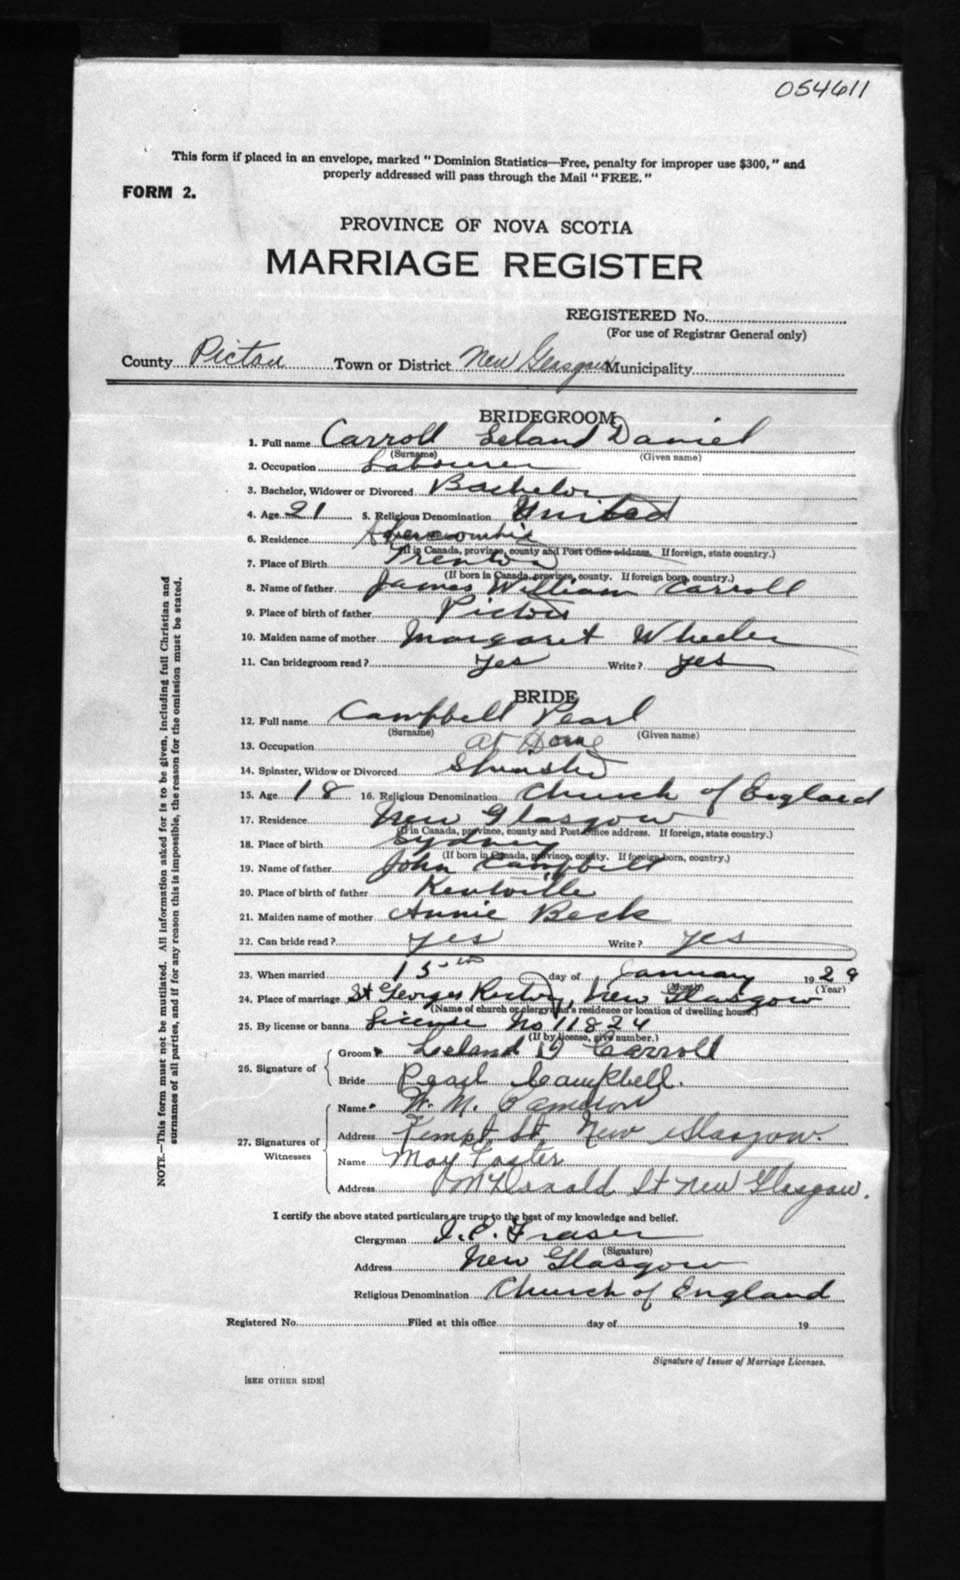 054611
This form if placed in an envelope, marked "Dominion Statistics—Free, penalty for improper use $300," and
properly addressed will pass through the Mail "FREE."
FORM 2.
PROVINCE OF NOVA SCOTIA
MARRIAGE REGISTER
REGISTERED No.
(For use of Registrar General only)
County Pictou Town or District New Glasgow Municipality
BRIDEGROOM
1. Full name Carroll Leland Daniel
(Surname) (Given name)
2. Occupation Labourer
3. Bachelor, Widower or Divorced Bachelor
4. Age 21 5. Religious Denomination United
6. Residence Abercrombie
(If in Canada, province, county and Post Office address. If foreign, state country.)
7. Place of Birth Trenton
(If born in Canada, province, county. If foreign born, country.)
8. Name of father James William Carroll
9. Place of birth of father Pictou
10. Maiden name of mother Margaret Wheeler
11. Can bridegroom read? yes Write? yes
BRIDE
12. Full name Campbell Pearl
(Surname) (Given name)
13. Occupation at Home
14. Spinster, Widow or Divorced Spinster
15. Age 18 16. Religious Denomination Church of England
17. Residence New Glasgow
(If in Canada, province, county and Post Office address. If foreign, state country.)
18. Place of birth Sydney
(If born in Canada, province, county. If foreign born, country.)
19. Name of father John Campbell
20. Place of birth of father Kentville
21. Maiden name of mother Annie Beck
22. Can bride read? yes Write? yes
23. When married 15th day of January 1929
(Month) (Year)
24. Place of marriage St Georges Rectory, New Glasgow
(Name of church or clergyman's residence or location of dwelling house.)
25. By license or banns License No 11824
(If by license, give number.)
26. Signature of
Groom Leland D Carroll
Bride Pearl Campbell.
27. Signatures of Witnesses
Name W. M. Cameron
Address Kempt St, New Glasgow.
Name May Foster
Address McDonald St New Glasgow.
I certify the above stated particulars are true to the best of my knowledge and belief.
Clergyman J. E. Fraser
(Signature)
Address New Glasgow
Religious Denomination Church of England
Registered No. Filed at this office day of 19
Signature of Issuer of Marriage Licenses.
[SEE OTHER SIDE]
NOTE.—This form must not be mutilated. All information asked for is to be given, including full Christian and
surnames of all parties, and if for any reason this is impossible, the reason for the omission must be stated.